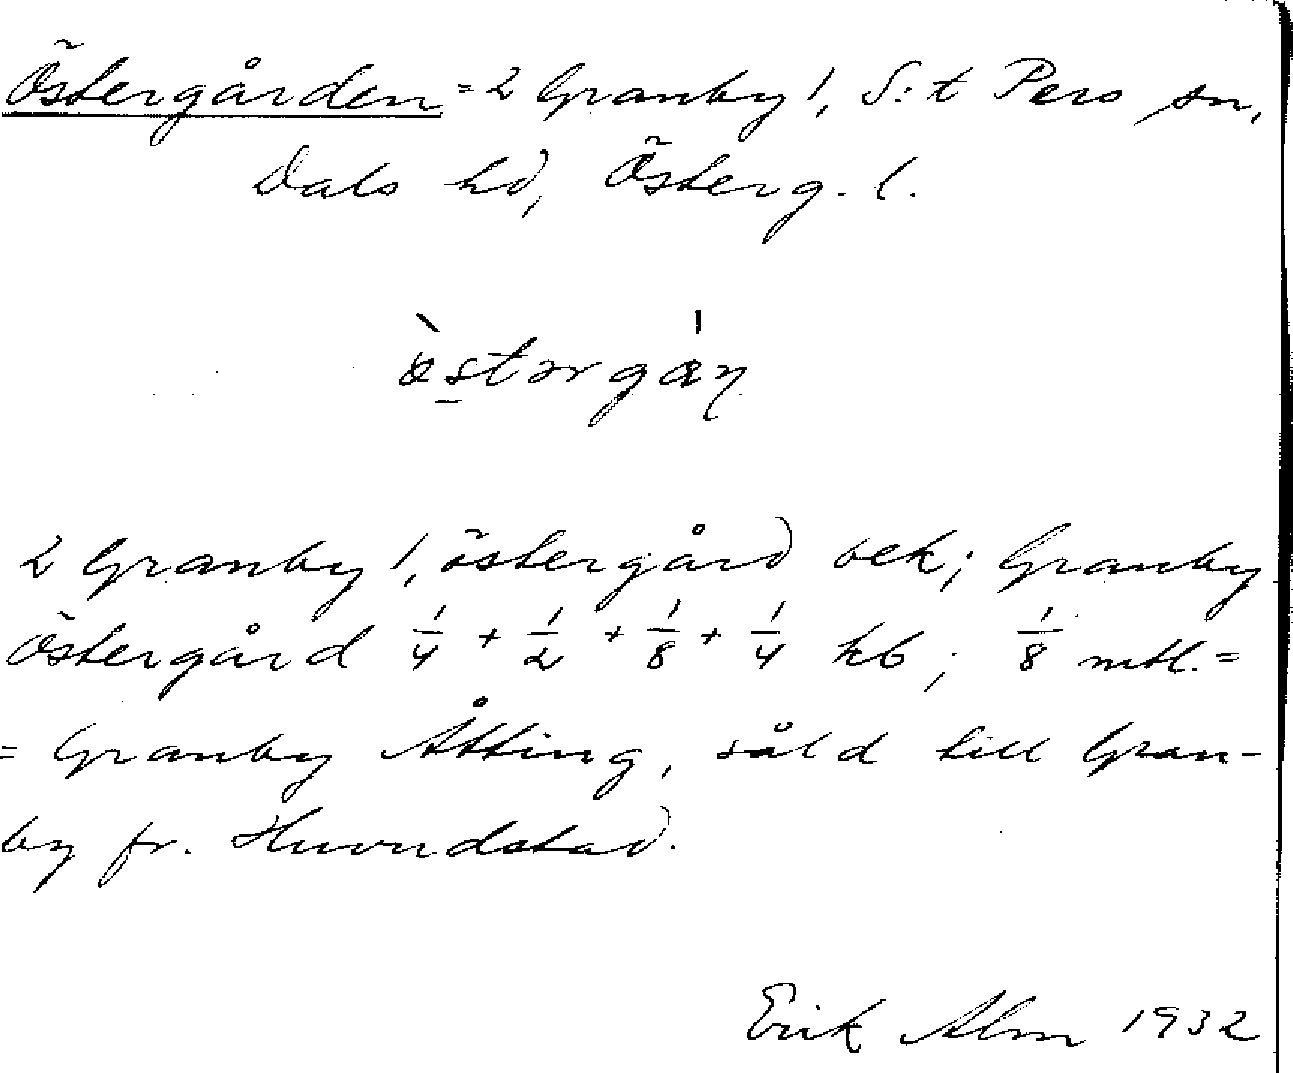 Östergården = 2 Granby 1, S:t Pers sn,
Dals hd, Österg. l.
östərgán
2 Granby 1, östergård bek; Granby
Östergård 1/4 + 1/2 + 1/8 + 1/4 kb; 1/8 mtl. =
= Granby Åtting, såld till Gran-
by fr. Huvudstad.
Erik Alm 1932